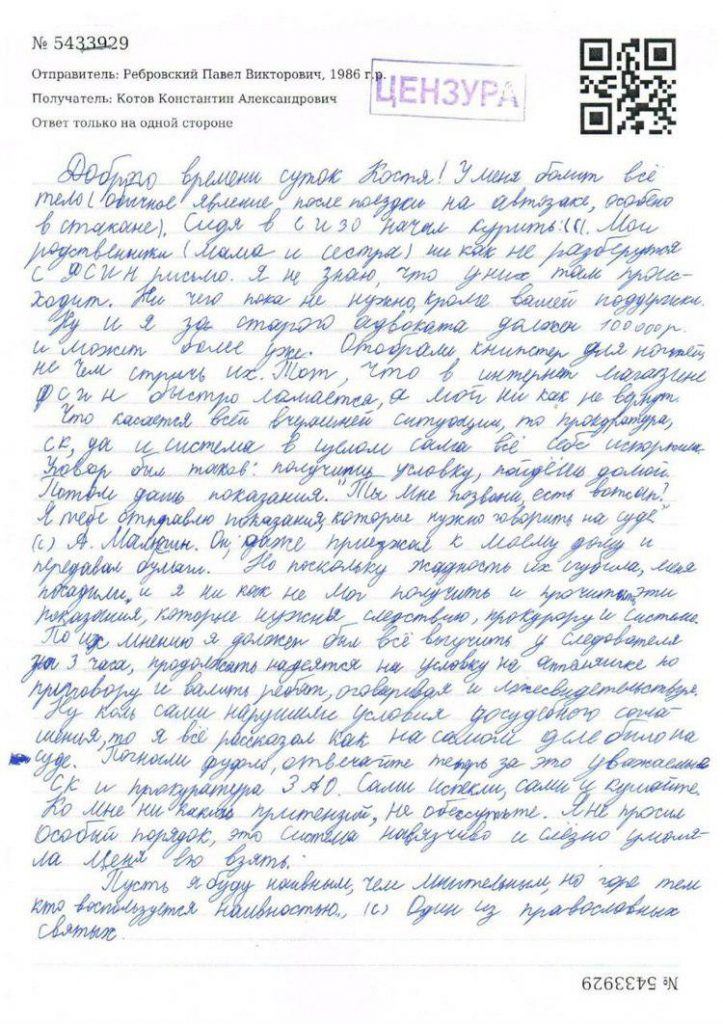 № 5433929
Отправитель: Ребровский Павел Викторович, 1986 г.р.
ЦЕНЗУРА
Получатель: Котов Константин Александрович
Ответ только на одной стороне
Доброго времени суток Костя! У меня болит всё
тело (обычное явление, после поездки на автозаке, особено
в стакане). Сидя в СИЗО начал курить :((. Мои
родственники (мама и сестра) ни как не разберутся
с ФСИН письмо. Я не знаю, что у них там проис-
ходит. Ни чего пока не нужно, кроме вашей поддержки.
Ну и я за старого адвоката должен 100000р.
и может более уже. Отобрали книпстер для ногтей,
не чем стричь их. Тот, что в интернет магазине
ФСИН быстро ломается, а мой ни как не вернут.
Что касается всей вчерашней ситуации, то прокуратура,
СК, да и система в целом сама всё себе испортила.
Уговор был таков: получить условку, пойдёшь домой.
Потом дашь показания. "Ты мне позвони, есть вотсап?
Я тебе отправлю показания, которые нужно говорить на суде"
(с) А. Малюгин. Он, даже приезжал к моему дому и
передавал бумаги. Но поскольку жадность их сгубила, меня
посадили, и я ни как не мог получить и прочитать эти
показания, которые нужны следствию, прокурору и системе.
По их мнению я должен был всё выучить у следователя
за 3 часа, продолжать надеятся на условку на аппеляшке по
приговору и валить ребят, оговаревая и лжесвидетельствуя.
Ну коль сами нарушили условия досудебного согла-
шения, то я всё рассказал как на самом деле было на
суде. Погнали фуфло, отвечайте теперь за это уважаемые
СК и прокуратура ЗАО. Сами испекли, сами и кушайте.
Ко мне ни каких притензий, не обессудьте. Я не просил
Особый порядок, это система навязчиво и слёзно умоля-
ла меня его взять.
Пусть я буду наивным, чем мнительным, но горе тем
кто воспользуется наивностью. (с) Один из православных
святых.
№ 5433929